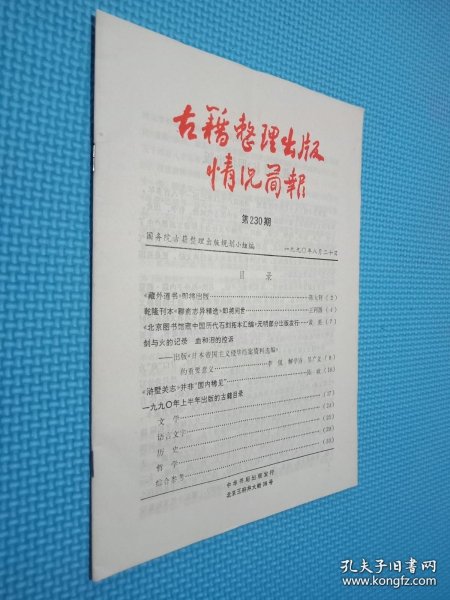 古籍整理出版
情况简报
第230期
国务院古籍整理出版规划小组编
一九九〇年八月二十日
目 录
《藏外道书》即将出版 (2)
乾隆刊本《聊斋志异精选》即将问世 (4)
《北京图书馆藏中国历代石刻拓本汇编》元明部分出版发行 (7)
剑与火的记录 血和泪的控诉
——出版《日本帝国主义侵华档案资料选编》
的重要意义 (8)
《浒墅关志》并非“国内稀见” (16)
一九九〇年上半年出版的古籍目录
文学 (17)
语言文字 (23)
历史 (25)
哲学 (29)
综合参考 (33)
中华书局出版发行
北京王府井大街36号
孔夫子旧书网
www.kongfz.com